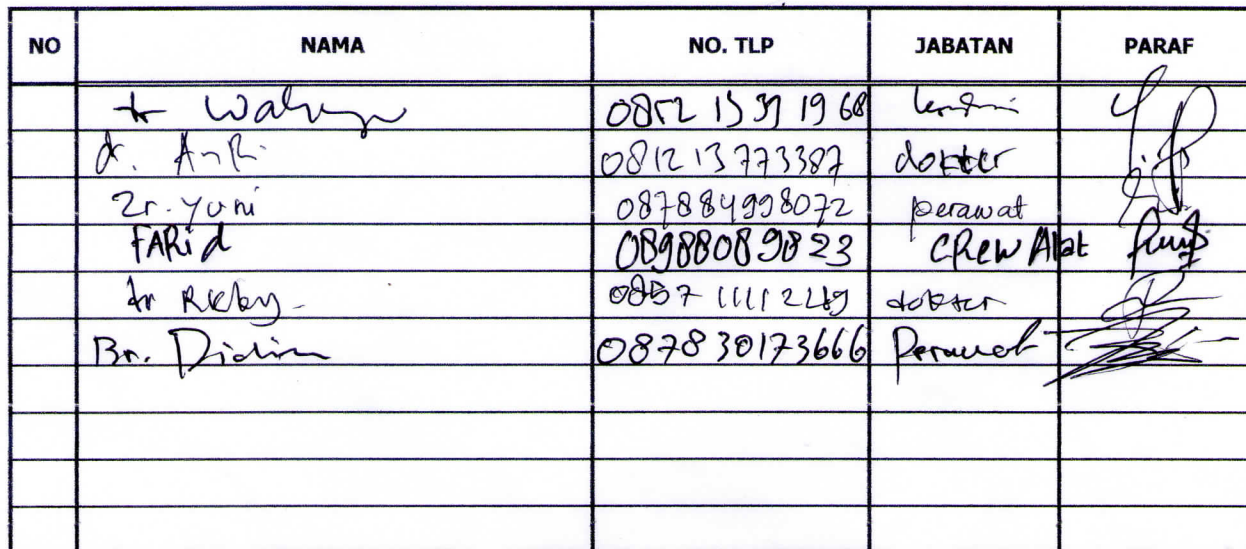 NO NAMA NO. TLP JABATAN PARAF
dr 0852 1539 1968
dr. 081213773387 dokter
Zr. yuni 087884998072 perawat
FARid 08988089823 CReW Alat
dr Ricky - 0857 11112219 dokter
Br. Didin 087830173666 Perawat